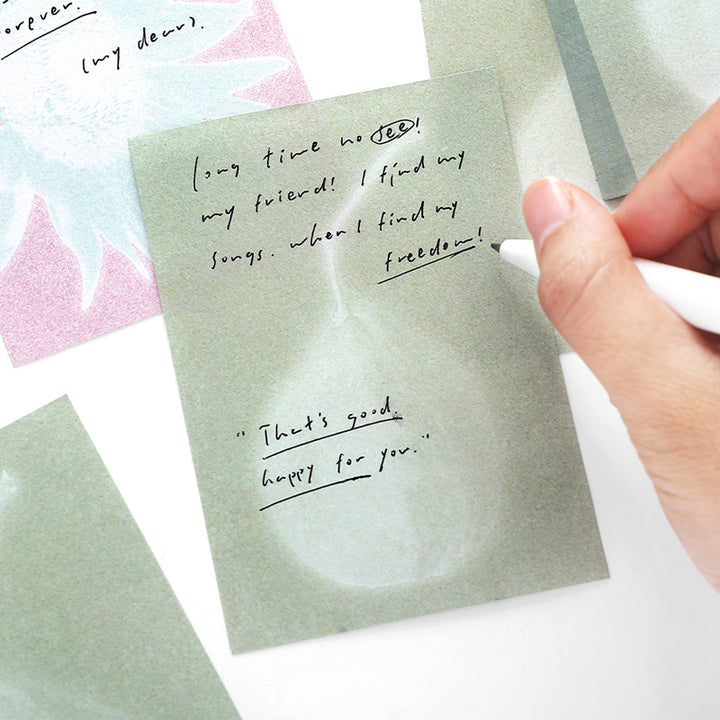 forever.
(my dear).
long time no see!
my friend! I find my
songs. when I find my
freedom!
"That's good.
happy for you."